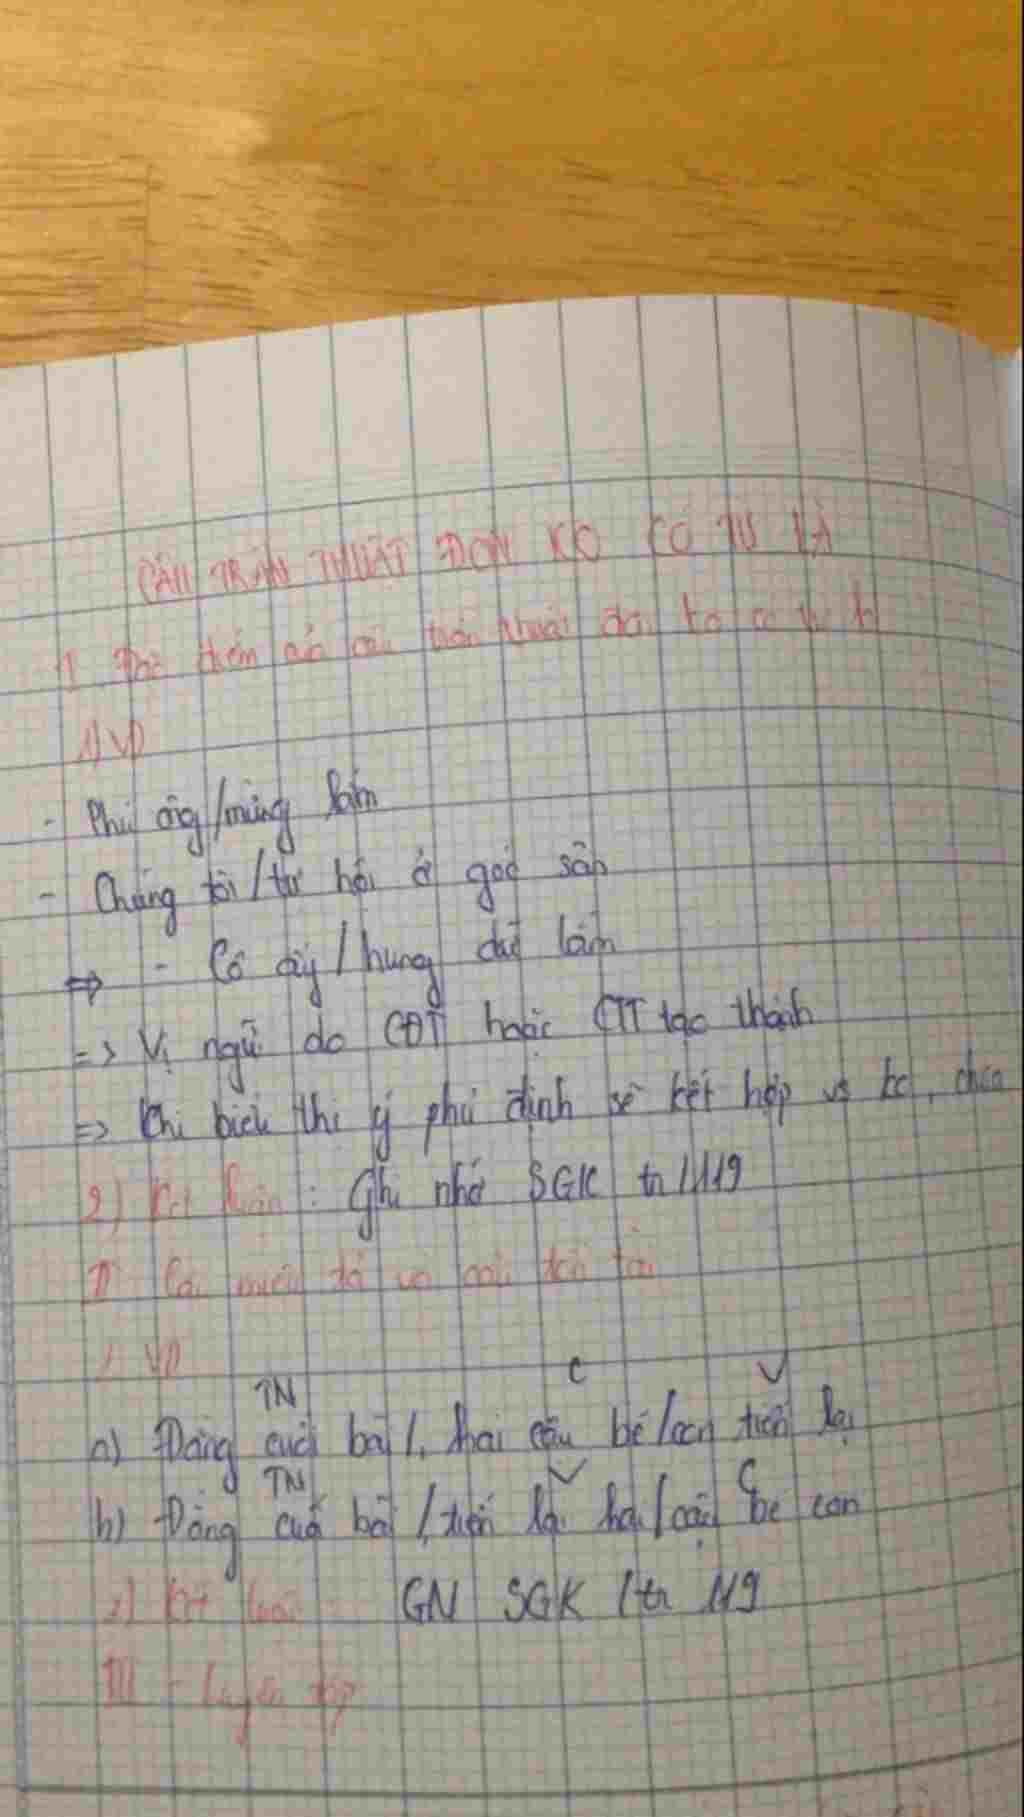 CÂU TRẦN THUẬT ĐƠN KO CÓ TỪ LÀ
I câu trần thuật đơn ko có từ là
1) VD
- Phú ông / mừng lắm
- Chúng tôi / tụ hội ở góc sân
=> - Cô ấy / hung dữ lắm
=> Vị ngữ do CĐT hoặc CTT tạo thành
=> Khi biểu thị ý phủ định sẽ kết hợp vs ko, chưa
2) Kết luận : Ghi nhớ SGK tr / 119
II Câu miêu tả và câu tồn tại
1 VD
TN C V
a) Đằng cuối bãi /, hai cậu bé / con tiến lại
TN V C
b) Đằng cuối bãi /, tiến lại hai / cậu bé con
2) Kết luận GN SGK / tr 119
III - Luyện tập